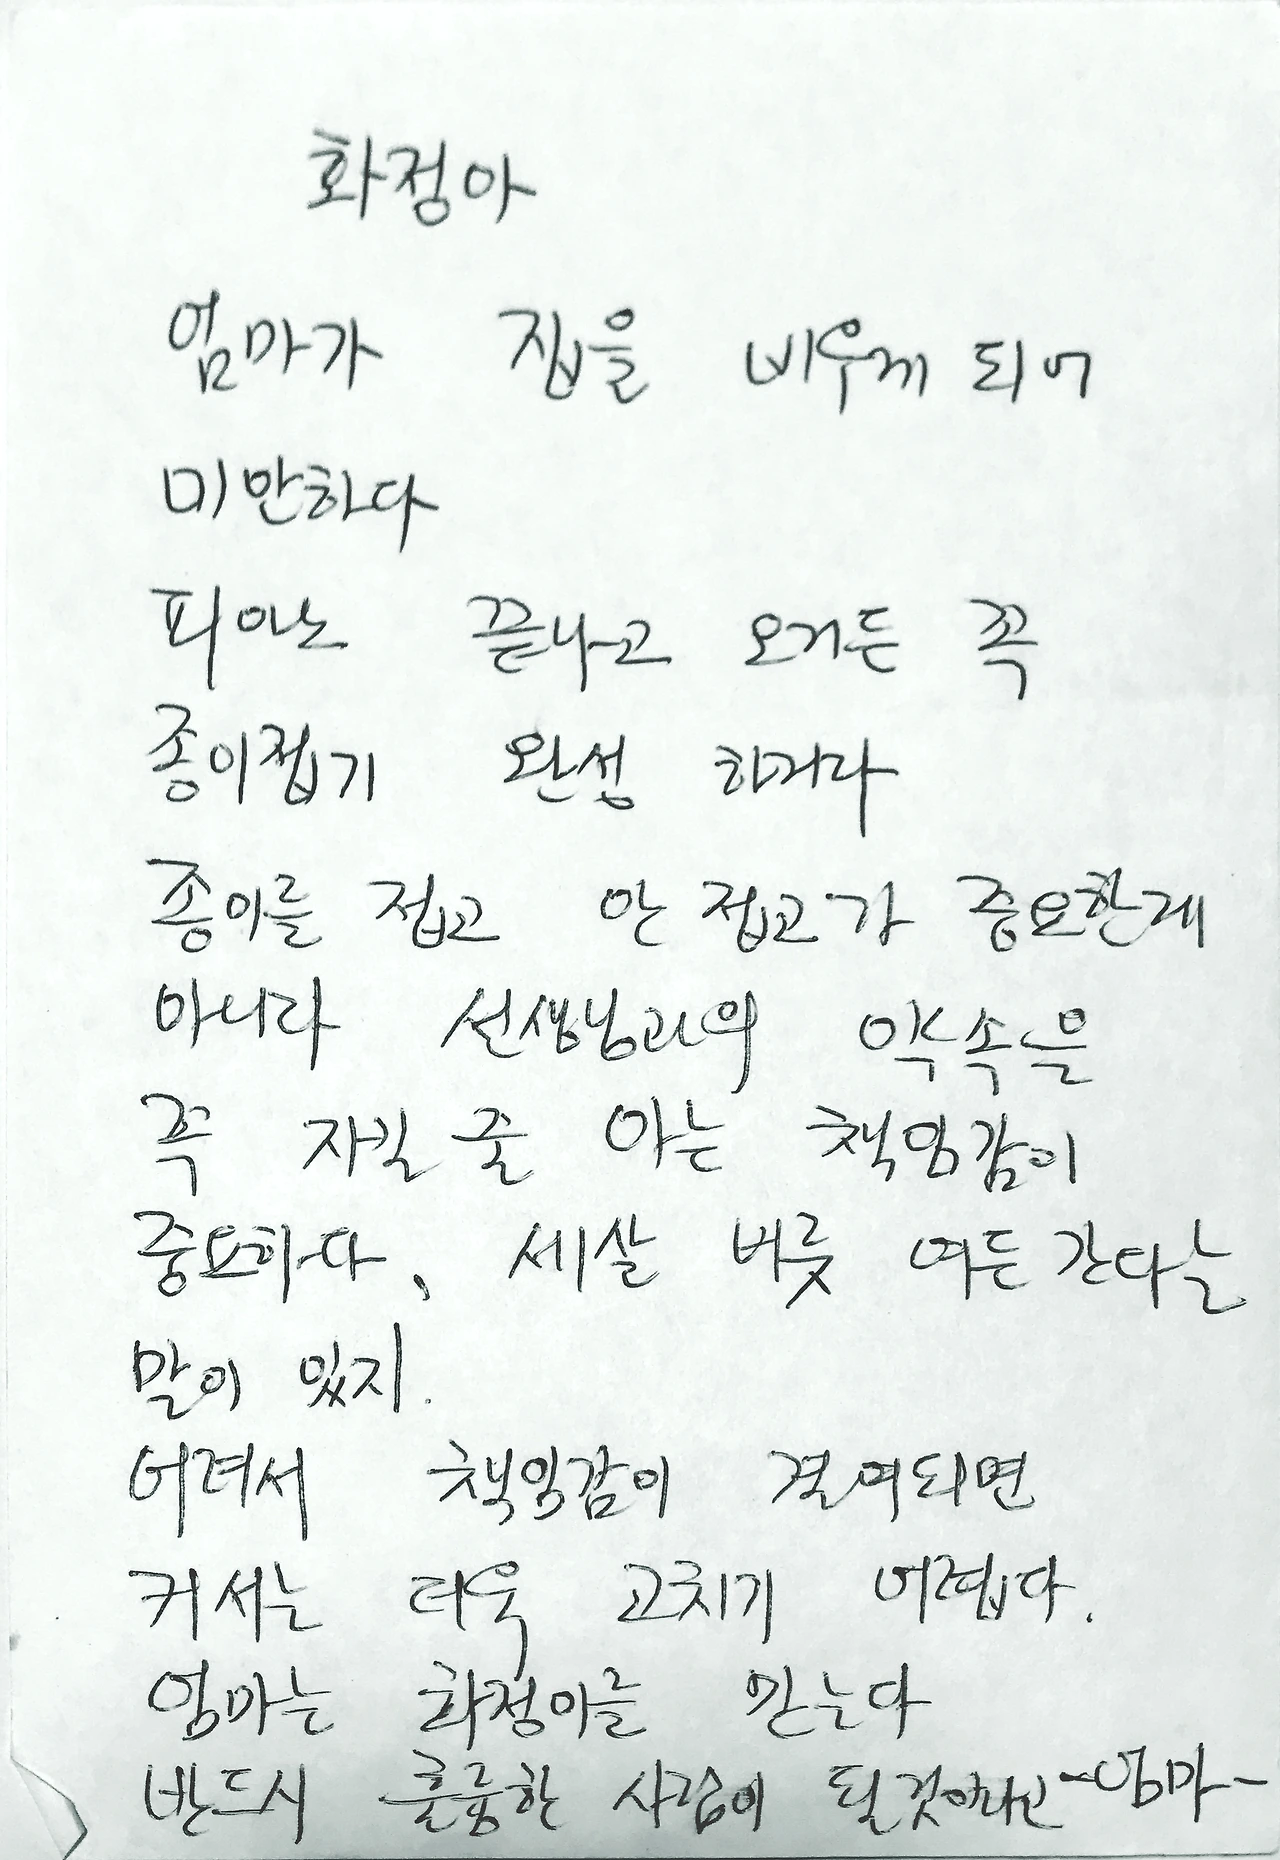 화정아
엄마가 집을 비우게 되어
미안하다
피아노 끝나고 오거든 꼭
종이접기 완성 하거라
종이를 접고 안 접고가 중요한게
아니라 선생님과의 약속을
꼭 지킬 줄 아는 책임감이
중요하다. 세살 버릇 여든 간다는
말이 있지.
어려서 책임감이 결여되면
커서는 더욱 고치기 어렵다.
엄마는 화정이를 믿는다
반드시 훌륭한 사람이 될것이라고 -엄마-